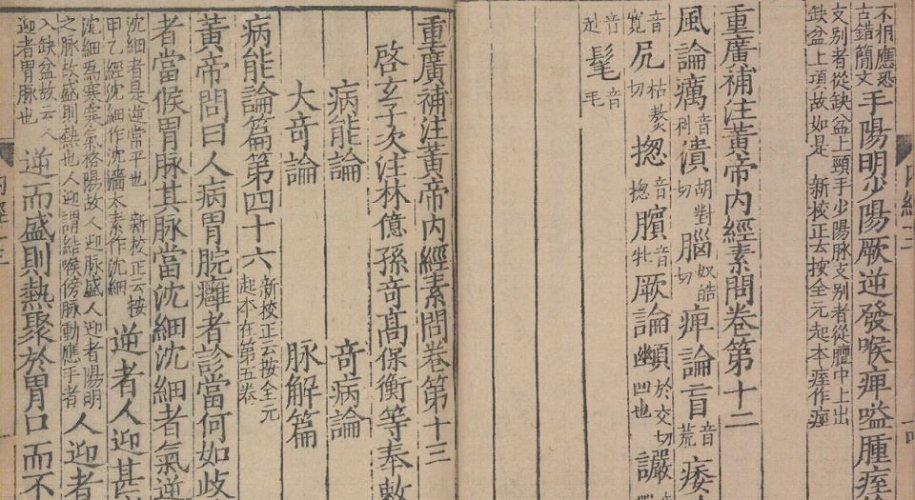 不相應恐
古錯簡文
手陽明少陽厥逆發喉痺嗌腫痓
文別者從缺盆上頸手少陽脉支別者從膻中上出
缺盆上項故如是 新校正云按全元起本痓作痙
重廣補注黃帝內經素問卷第十二
風論癘音科潰胡對切腦奴皓切痺論肓音荒痿
音寬尻枯熬切揔音揔臏音牝厥論䫜於交切幽凹也讝
疋髦音毛
重廣補注黃帝內經素問卷第十三
啓玄子次注林億孫奇高保衡等奉敕
病能論 奇病論
大奇論 脉解篇
病能論篇第四十六新校正云按全元起本在第五卷
黃帝問曰人病胃脘癰者診當何如歧
者當候胃脉其脉當沈細沈細者氣逆
沈細者是逆常平也 新校正云按
甲乙經沈細作沈濇太素作沈細
逆者人迎甚
沈細爲寒寒氣格陽故人迎脉盛人迎者陽明
之脉故盛則熱也人迎謂結喉傍脉動應手者
人迎者
入缺盆故云人
迎者胃脉也
逆而盛則熱聚於胃口而不